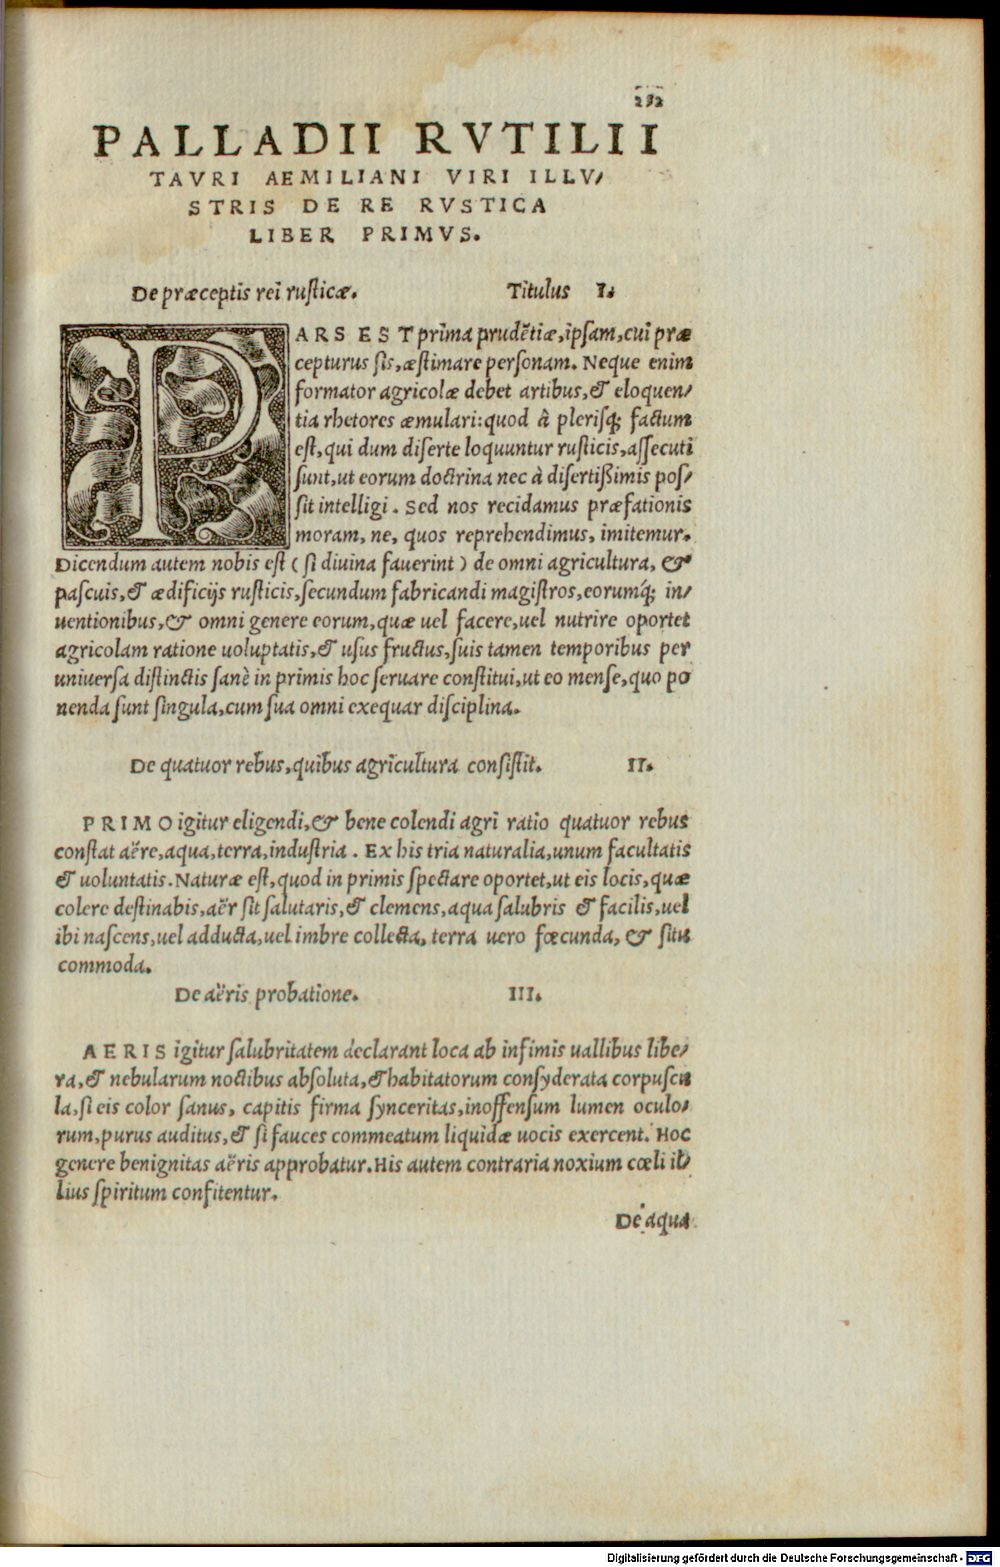 232
PALLADII RVTILII
TAVRI AEMILIANI VIRI ILLV/
STRIS DE RE RVSTICA
LIBER PRIMVS.
De præceptis rei rusticæ. Titulus I.
PARS EST prima prudẽtiæ, ipsam, cui præ
cepturus sis, æstimare personam. Neque enim
formator agricolæ debet artibus, & eloquen/
tia rhetores æmulari: quod â plerisq; factum
est, qui dum diserte loquuntur rusticis, assecuti
sunt, ut eorum doctrina nec à disertißimis pos/
sit intelligi. Sed nos recidamus præfationis
moram, ne, quos reprehendimus, imitemur.
Dicendum autem nobis est (si diuina fauerint) de omni agricultura, &
pascuis, & ædificijs rusticis, secundum fabricandi magistros, eorumq́; in/
uentionibus, & omni genere eorum, quæ uel facere, uel nutrire oportet
agricolam ratione uoluptatis, & usus fructus, suis tamen temporibus per
uniuersa distinctis sanè in primis hoc seruare constitui, ut eo mense, quo po
nenda sunt singula, cum sua omni exequar disciplina.
De quatuor rebus, quibus agricultura consistit. II.
PRIMO igitur eligendi, & bene colendi agri ratio quatuor rebus
constat aëre, aqua, terra, industria. Ex his tria naturalia, unum facultatis
& uoluntatis. Naturæ est, quod in primis spectare oportet, ut eis locis, quæ
colere destinabis, aër sit salutaris, & clemens, aqua salubris & facilis, uel
ibi nascens, uel adducta, uel imbre collecta, terra uero fœcunda, & situ
commoda.
De aëris probatione. III.
AERIS igitur salubritatem declarant loca ab infimis uallibus libe/
ra, & nebularum noctibus absoluta, & habitatorum consyderata corpuscu
la, si eis color sanus, capitis firma synceritas, inoffensum lumen oculo/
rum, purus auditus, & si fauces commeatum liquidæ uocis exercent. Hoc
genere benignitas aëris approbatur. His autem contraria noxium cœli il/
lius spiritum confitentur.
De aqua
Digitalisierung gefördert durch die Deutsche Forschungsgemeinschaft - DFG